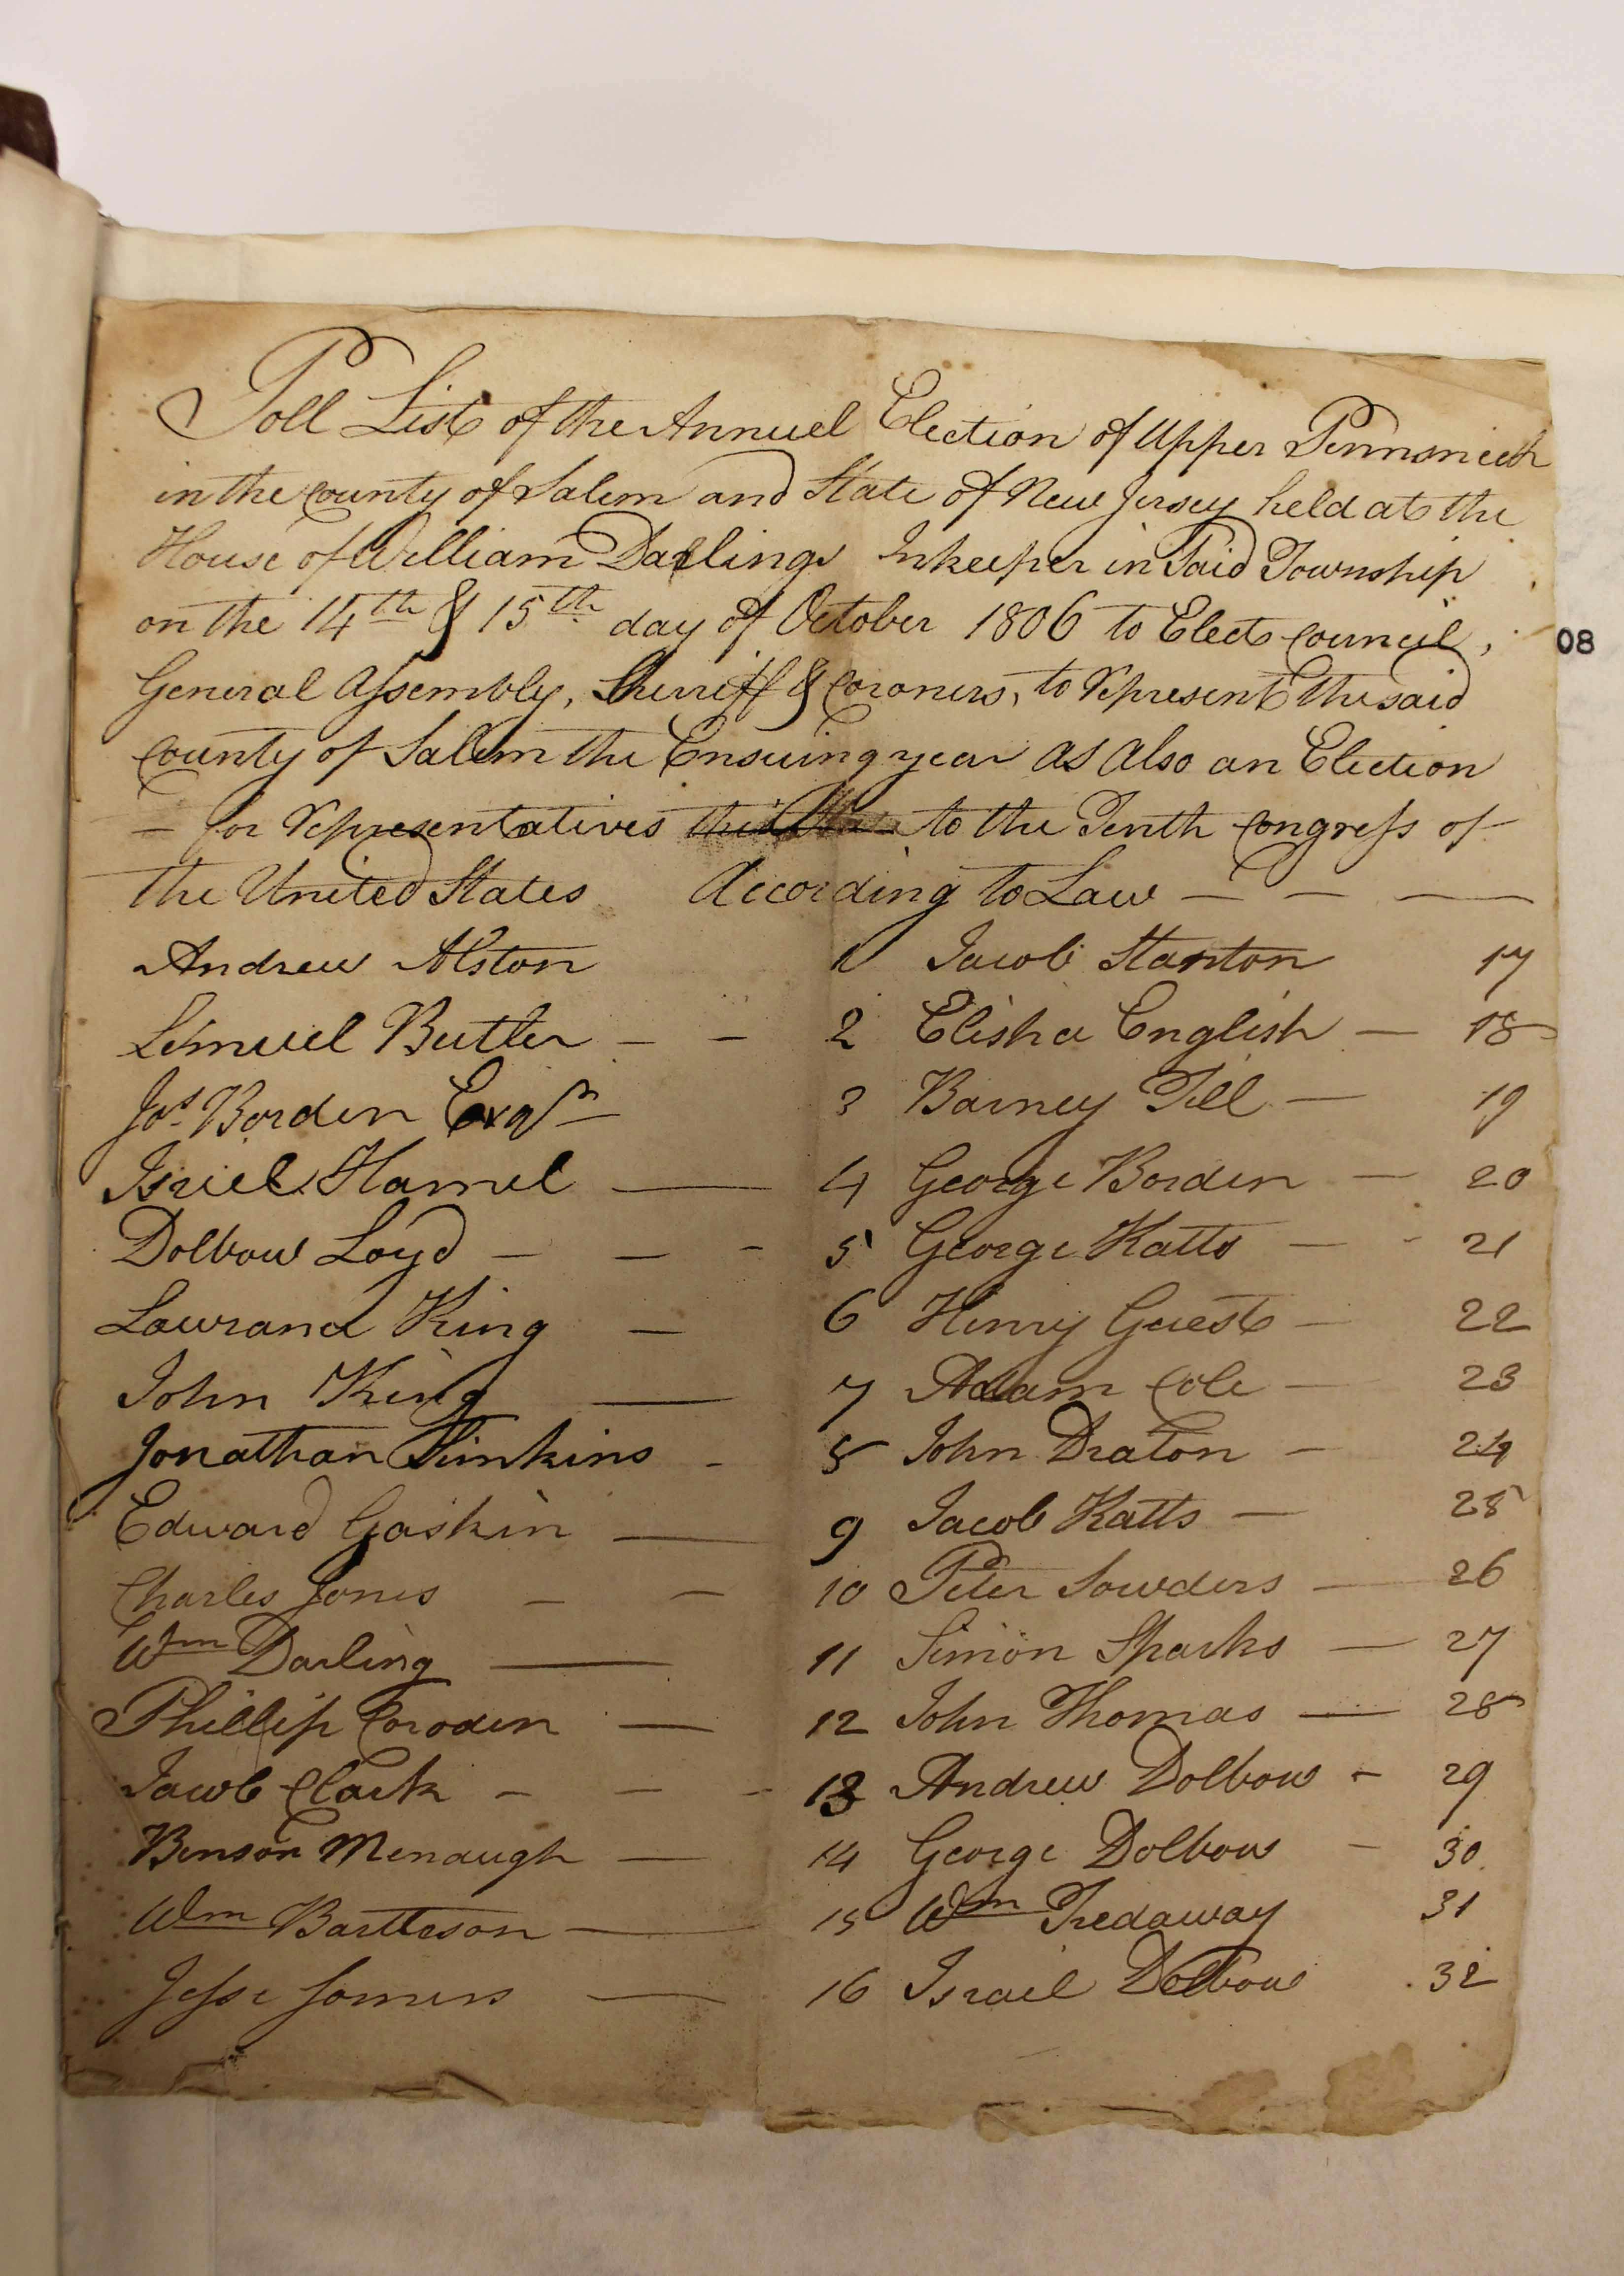 Poll List of the Annuel Election of Upper Pennsneck
in the county of Salem and State of New Jersey held at the
House of William Darling Inkeeper in Said Township
on the 14th & 15th day of October 1806 to Elect Council,
General Assembly, Sherriff & Coroners, to represent the said
County of Salem the Ensuing year as also an Election
— for representatives to the Tenth Congress of
the United States According to Law — — —
Andrew Alston 1 Jacob Stanton 17
Lemuel Butler — — 2 Elisha English — 18
Jos Borden Esqr 3 Barney Till — 19
Isriel Hamel — 4 George Borden — 20
Dolbow Loyd — — - 5 George Katts — - 21
Lawrance King — 6 Henry Guest — 22
John King — 7 Adam Cole — 23
Jonathan Simkins - 8 John Draton — 24
Edward Gaskin — 9 Jacob Katts — 25
Charles Jones — — 10 Peter Sowders — 26
Wm Darling — 11 Simon Sparks — 27
Phillip Coroden — 12 John Thomas — 28
Jacob Clark — — - 13 Andrew Dolbow - 29
Benson Menaugh — 14 George Dolbow — 30
Wm Bartleson — 15 Wm Tredaway 31
Jesse Somers — 16 Israel Dolbow 32
08